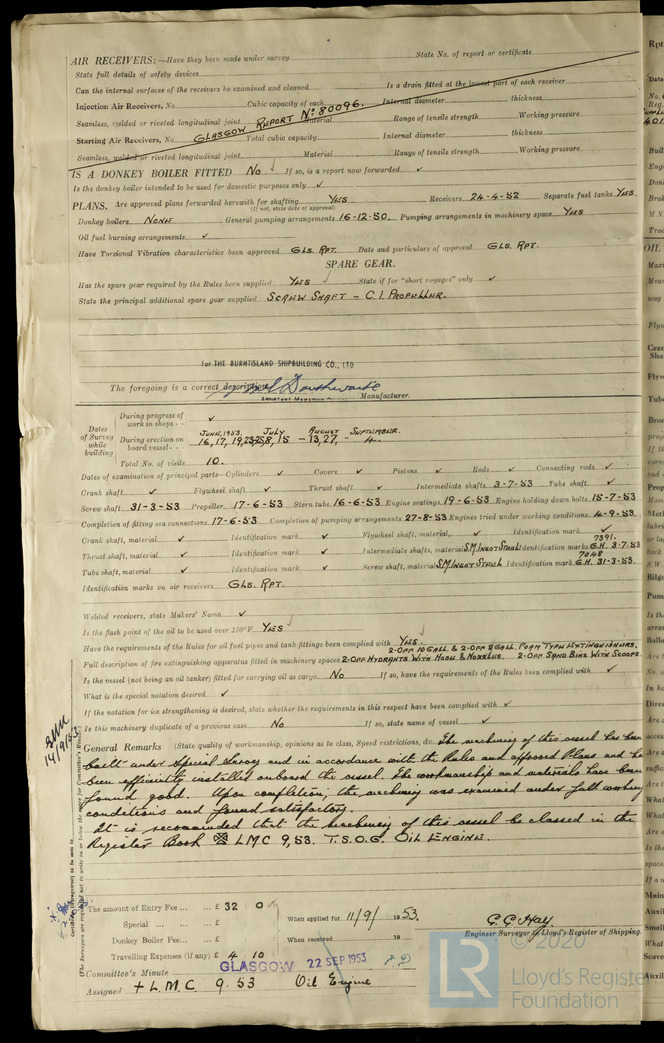 AIR RECEIVERS:—Have they been made under survey State No. of report or certificate
State full details of safety devices
Can the internal surfaces of the receivers be examined and cleaned Is a drain fitted at the lowest part of each receiver
Injection Air Receivers, No. Cubic capacity of each Internal diameter thickness
Seamless, welded or riveted longitudinal joint Material Range of tensile strength Working pressure
GLASGOW REPORT No 80096.
Starting Air Receivers, No. Total cubic capacity Internal diameter thickness
Seamless, welded or riveted longitudinal joint Material Range of tensile strength Working pressure
IS A DONKEY BOILER FITTED No ✓ If so, is a report now forwarded ✓
Is the donkey boiler intended to be used for domestic purposes only ✓
PLANS, Are approved plans forwarded herewith for shafting YES Receivers 24-4-52 Separate fuel tanks YES
(If not, state date of approval)
Donkey boilers NONE General pumping arrangements 16-12-50. Pumping arrangements in machinery space YES
Oil fuel burning arrangements ✓
Have Torsional Vibration characteristics been approved GLS. RPT. Date and particulars of approval GLS. RPT.
SPARE GEAR.
Has the spare gear required by the Rules been supplied YES ✓ State if for "short voyages" only ✓
State the principal additional spare gear supplied SCREW SHAFT – C.I. PROPELLER.
For THE BURNTISLAND SHIPBUILDING CO., LTD
The foregoing is a correct description, Manufacturer.
Dates of Survey while building
During progress of work in shops - - ✓
JUNE, 1953. JULY AUGUST – SEPTEMBER.
During erection on board vessel - - -
Total No. of visits 10.
Dates of examination of principal parts—Cylinders ✓ Covers ✓ Pistons ✓ Rods ✓ Connecting rods ✓
Crank shaft ✓ Flywheel shaft ✓ Thrust shaft ✓ Intermediate shafts 3-7-53 Tube shaft ✓
Screw shaft 31-3-53 Propeller 17-6-53 Stern tube 16-6-53 Engine seatings 19-6-53 Engine holding down bolts 15-7-53
Completion of fitting sea connections 17-6-53 Completion of pumping arrangements 27-8-53 Engines tried under working conditions 4-9-53.
Crank shaft, material ✓ Identification mark ✓ Flywheel shaft, material ✓ Identification mark ✓
Thrust shaft, material ✓ Identification mark ✓ Intermediate shafts, material S.M. INGOT STEEL Identification marks 7391. G.H. 3-7-53
Tube shaft, material ✓ Identification mark ✓ Screw shaft, material S.M. INGOT STEEL Identification mark 7048 G.H. 31-3-53.
Identification marks on air receivers GLS. RPT.
Welded receivers, state Makers' Name ✓
Is the flash point of the oil to be used over 150°F. YES ✓
Have the requirements of the Rules for oil fuel pipes and tank fittings been complied with YES ✓
2-OFF 10 GALL & 2-OFF 2 GALL. FOAM TYPE EXTINGUISHERS.
Full description of fire extinguishing apparatus fitted in machinery spaces 2-OFF HYDRANTS WITH HOSE & NOZZLE. 2-OFF SAND BINS WITH SCOOPS.
Is the vessel (not being an oil tanker) fitted for carrying oil as cargo No If so, have the requirements of the Rules been complied with ✓
What is the special notation desired ✓
If the notation for ice strengthening is desired, state whether the requirements in this respect have been complied with ✓
Is this machinery duplicate of a previous case No If so, state name of vessel ✓
14/9/53
General Remarks (State quality of workmanship, opinions as to class, Speed restrictions, &c. The machinery of this vessel has been
built under Special Survey and in accordance with the Rules and approved Plans and has
been efficiently installed onboard the vessel. The workmanship and materials have been
found good. Upon completion, the machinery was examined under full working
conditions and found satisfactory.
It is recommended that the machinery of this vessel be classed in the
Register Book LMC 9,53. T.S. O.G. OIL ENGINE.
The amount of Entry Fee ... £ 32 0
When applied for 11/9/ 1953.
Special ... ... £
G.G. Hay
Engineer Surveyor to Lloyd's Register of Shipping.
Donkey Boiler Fee... £
When received 19
Travelling Expenses (if any) £ 4 10
GLASGOW 22 SEP 1953
Committee's Minute
Assigned + L.M.C 9.53 Oil Engine
LR © 2020
Lloyd's Register
Foundation